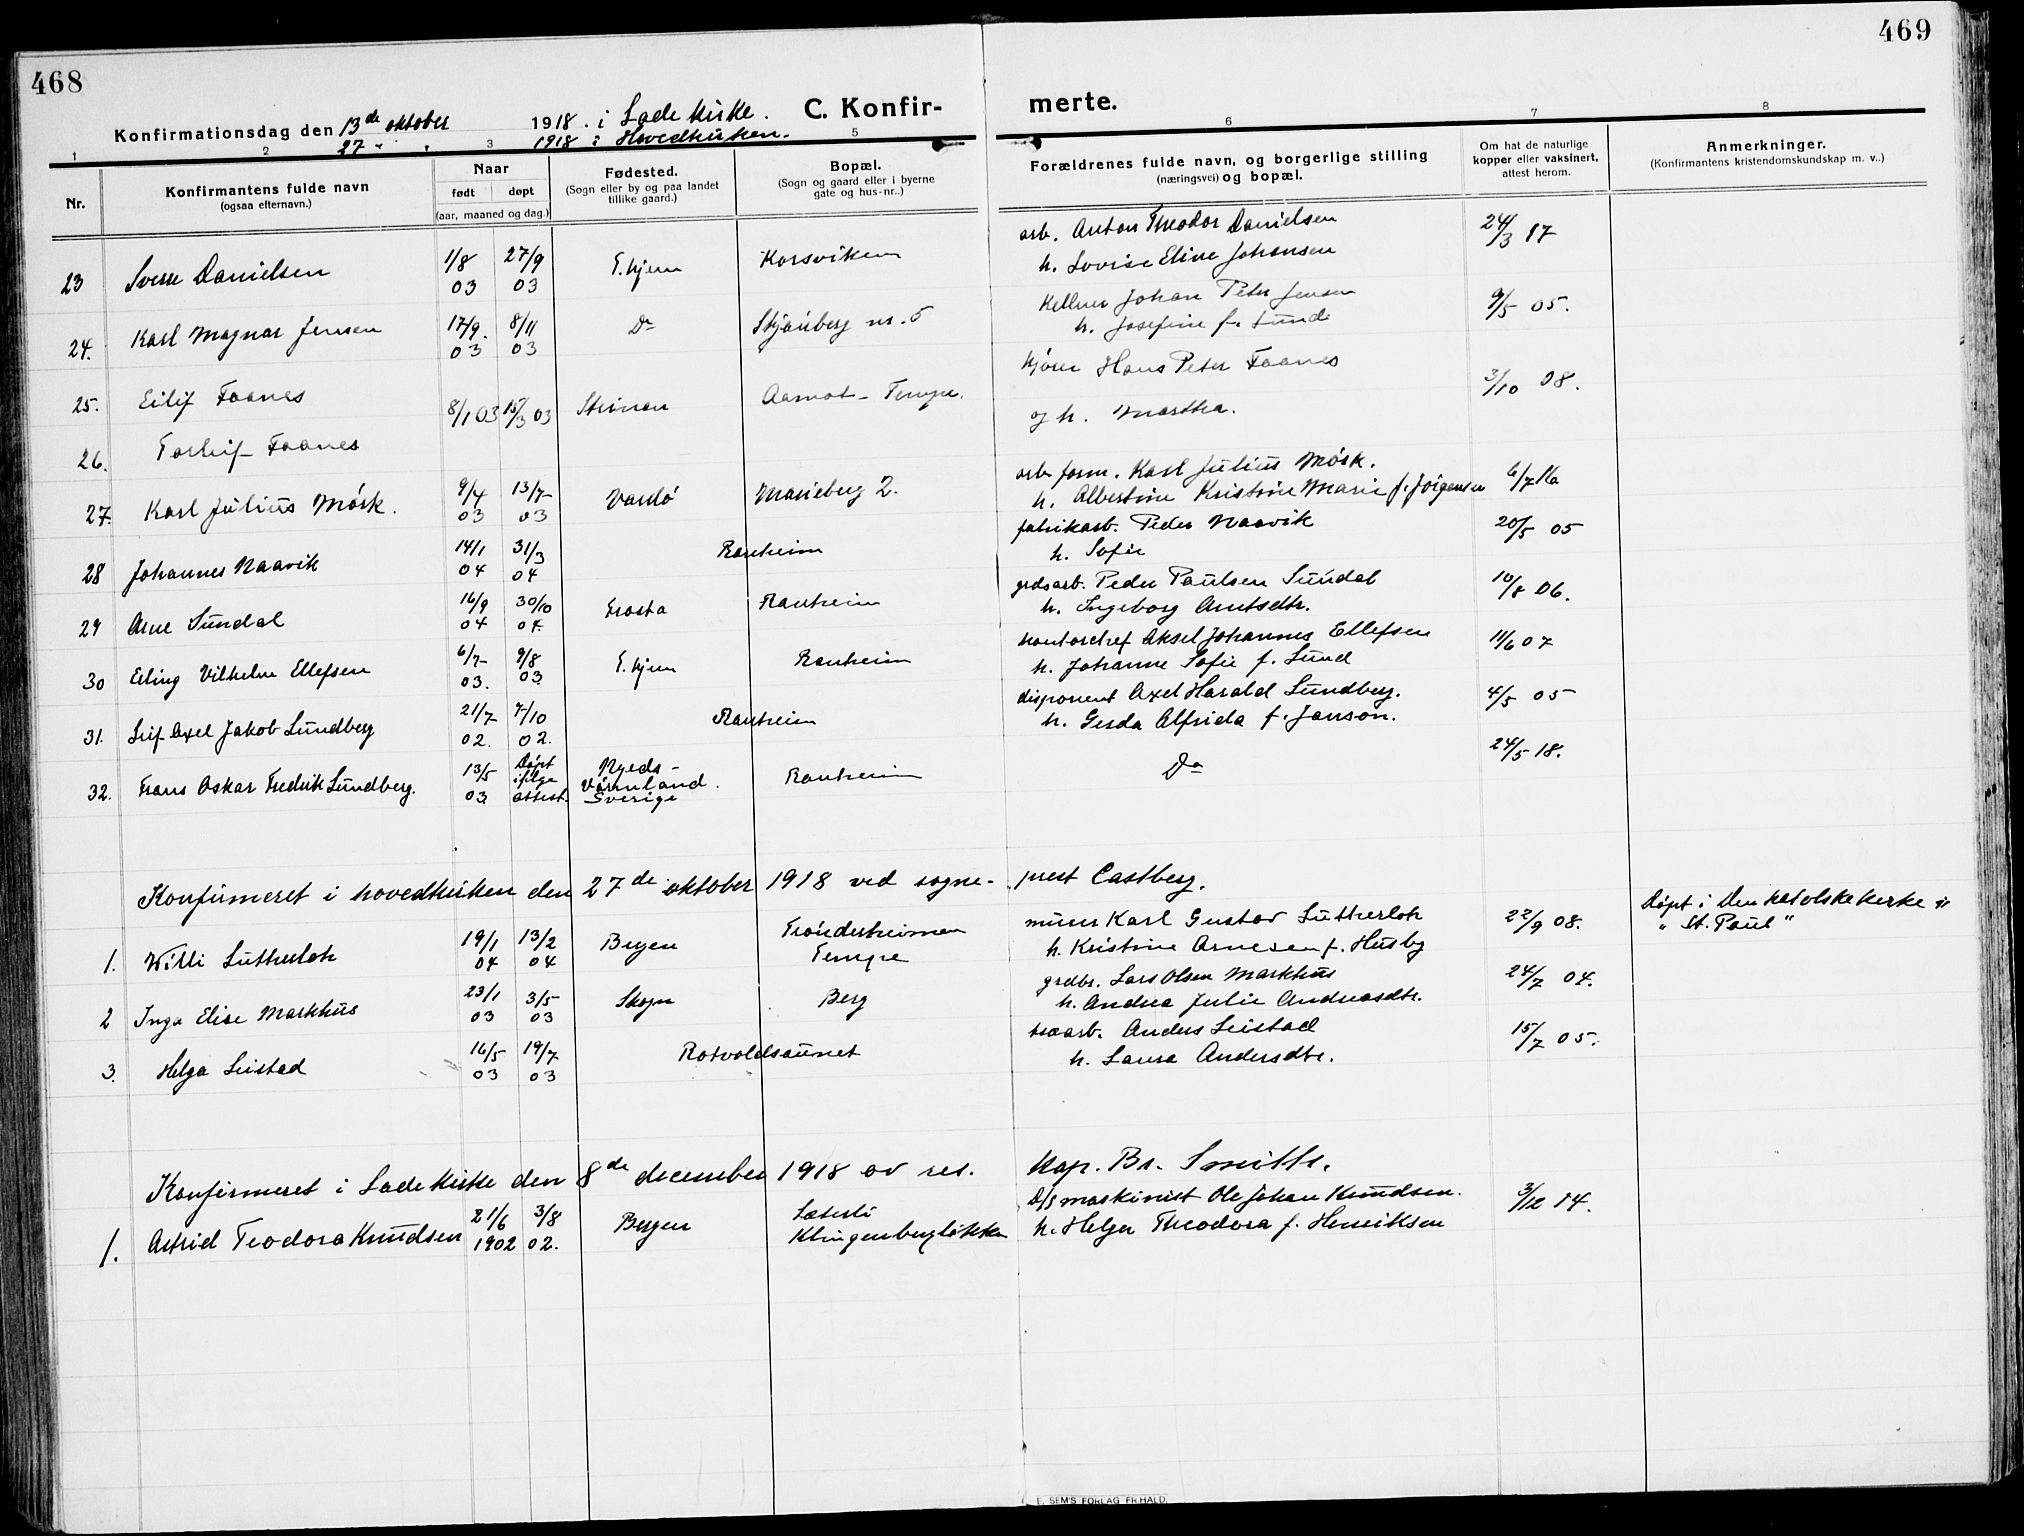 468
469
Konfirmationsdag den 13de oktober 1918. i Lade Kirke. C. Konfir- merte.
27 " " 1918 i Hovedkirken.
1 2 3 5 6 7 8
Nr.
Konfirmantens fulde navn
(ogsaa efternavn.)
Naar
født døpt
(aar, maaned og dag.)
Fødested.
(Sogn eller by og paa landet
tillike gaard.)
Bopæl.
(Sogn og gaard eller i byerne
gate og hus-nr..)
Forældrenes fulde navn, og borgerlige stilling
(næringsvei) og bopæl.
Om hat de naturlige
kopper eller vaksinert,
attest herom.
Anmerkninger.
(Konfirmantens kristendomskundskap m. v..)
23 Sverre Danielsen 1/8 03 27/9 03 T.hjem Korsviken arb. Anton Theodor Danielsen 24/3 17
h. Lovise Eline Johansen
24. Karl Magnar Jensen 17/9. 03 8/11 03 Do Skjånberg nr. 5 Kellner Johan Peter Jensen 9/5 05.
h. Josefine f. Lunde
25. Eilif Faanes 8/1 03 15/3 03 Strinen Aamot - Tempe. kjører Hans Peter Faanes 3/10 08.
og h. Martha.
26. Torleif Faanes
27. Karl Julius Mörk. 9/4 03 13/7 03 Vardö Marieberg 2. arb. form. Karl Julius Mörk. 6/7 16
h. Albertine Kristine Marie f. Jörgensen
28 Johannes Naavik 14/1 04 31/3 04 Ranheim fabrikarb. Peder Naavik 20/5 05
h. Sofie
29 Arne Sundal 16/9 04 30/10 04. Frosta Ranheim grdsarb. Peder Paulsen Sundal 10/8 06.
h. Ingeborg Arntsdtr.
30 Erling Vilhelm Ellefsen 6/7 03. 9/8 03. T.hjem Ranheim kontorchef Aksel Johannes Ellefsen 11/6 07
h. Johanne Sofie f. Lund
31. Leif Axel Jakob Lundberg 21/7 02. 7/10 02. Ranheim disponent Axel Harald Lundberg. 4/5 05
h. Gerda Alfrida f. Janson.
32. Frans Oskar Fredrik Lundberg. 13/5 03 Døpt ifølge attest. Nyeds- Värmland. Sverige Ranheim Do 24/5 18.
Konfirmeret i hovedkirken den 27de oktober 1918 ved sogne- prest Castberg.
1. Willi Lutherloh 19/1 04 13/2 04 Bergen Trondertreimen Tempe murer Karl Gustav Lutherloh 22/9 08. Døpt i Den katolske kirke
h. Kristine Arnesen f. Husby " St. Paul"
2 Inga Elise Markhus 23/1 03 3/5 03 Skogn Berg grdbr. Lars Olsen Markhus 24/7 04.
h. Andrea Julie Andreasdtr.
3. Helga Leistad 16/5 03 19/7 03 Rotvoldsaunet Anders Leistad 15/7 05.
h. Laura Andersdtr.
Konfirmeret i Lade kirke den 8de december 1918 av res. kap. Br. Smith.
1. Astrid Teodora Knudsen 21/6 1902 3/8 02. Bergen Sæterli Klingenbergløkken D/S maskinist Ole Johan Knudsen. 3/12 14.
h. Helga Theodora f. Henriksen
E. SEM'S FORLAG FR.HALD.